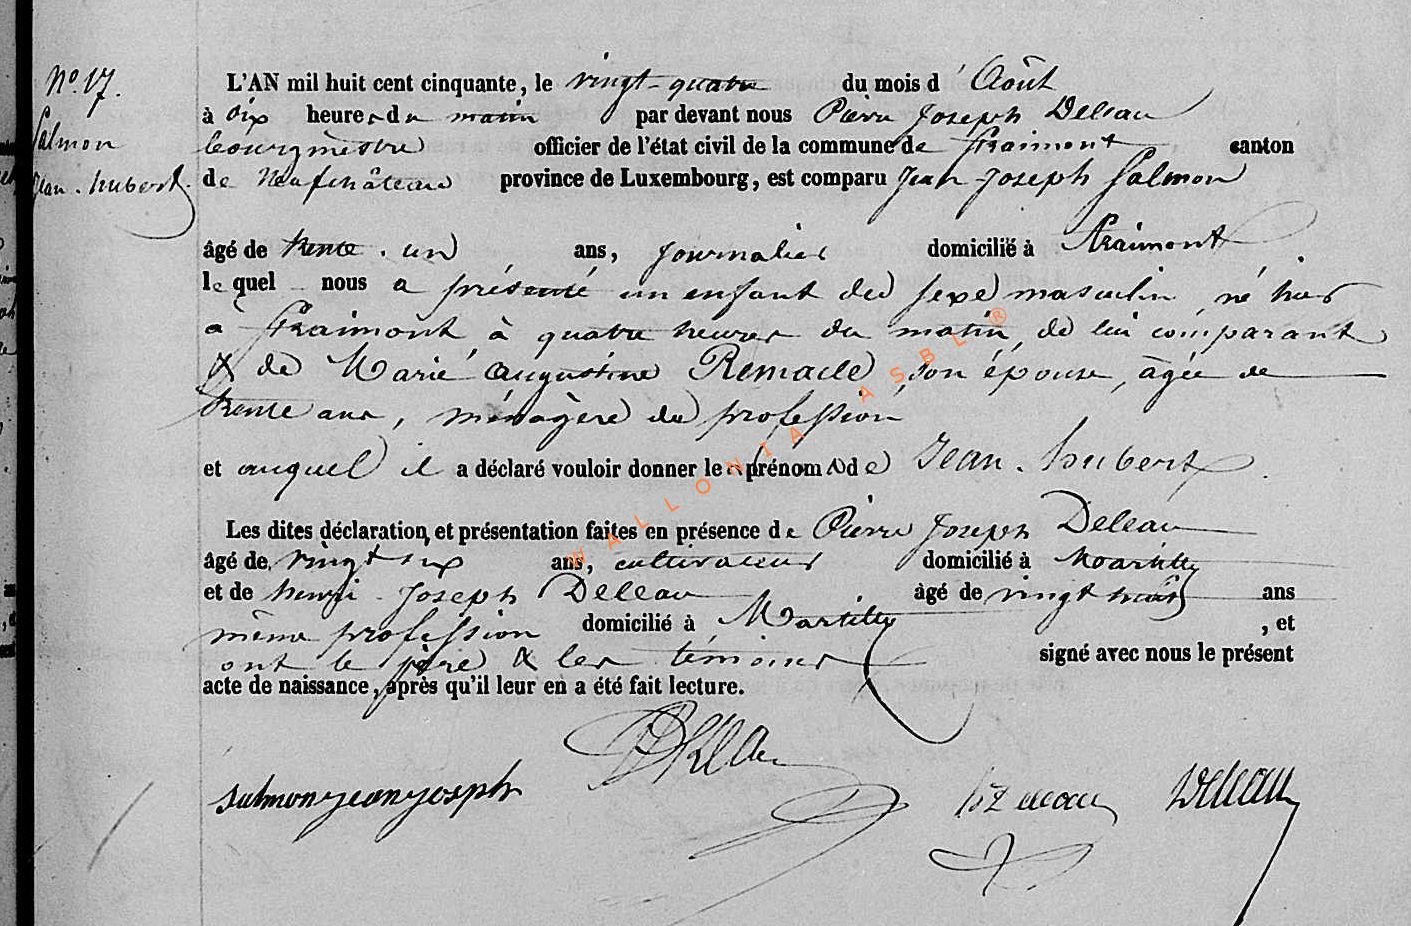 N° 17.
Salmon
Jean-hubert.
L'AN mil huit cent cinquante, le vingt-quatre du mois d'Août
à dix heures du matin par devant nous Pierre Joseph Deleau
bourgmestre officier de l'état civil de la commune de Straimont canton
de Neufchâteau province de Luxembourg, est comparu Jean-Joseph Salmon
âgé de trente-un ans, journalier domicilié à Straimont
lequel nous a présenté un enfant du sexe masculin né hier
à Straimont à quatre heures du matin, de lui comparant
& de Marie Augustine Remacle, son épouse, âgée de
trente ans, ménagère de profession
et auquel il a déclaré vouloir donner les prénoms de Jean-hubert.
Les dites déclaration, et présentation faites en présence de Pierre Joseph Deleau
âgé de vingt six ans, cultivateur domicilié à Martilly
et de henri-Joseph Deleau âgé de vingt huit ans
même profession domicilié à Martilly, et
ont le père & les témoins signé avec nous le présent
acte de naissance, après qu'il leur en a été fait lecture.
salmon jean josph Deleau
WALLONIA ASBL ®